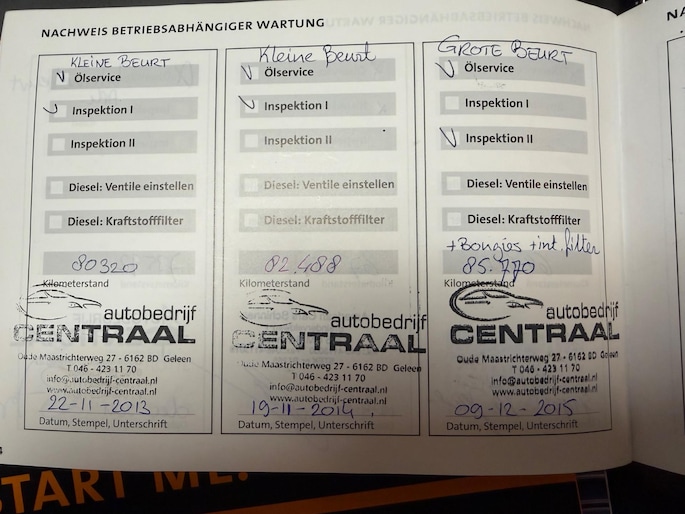 NACHWEIS BETRIEBSABHÄNGIGER WARTUNG
KLEINE BEURT
Ölservice
Inspektion I
Inspektion II
Diesel: Ventile einstellen
Diesel: Kraftstofffilter
80320
Kilometerstand
autobedrijf
CENTRAAL
Oude Maastrichterweg 27 - 6162 BD Geleen
T 046 - 423 11 70
info@autobedrijf-centraal.nl
www.autobedrijf-centraal.nl
22-11-2013
Datum, Stempel, Unterschrift
Kleine Beurt
Ölservice
Inspektion I
Inspektion II
Diesel: Ventile einstellen
Diesel: Kraftstofffilter
82.488
Kilometerstand
autobedrijf
CENTRAAL
Oude Maastrichterweg 27 - 6162 BD Geleen
T 046 - 423 11 70
info@autobedrijf-centraal.nl
www.autobedrijf-centraal.nl
19-11-2014
Datum, Stempel, Unterschrift
GROTE BEURT
Ölservice
Inspektion I
Inspektion II
Diesel: Ventile einstellen
Diesel: Kraftstofffilter
+Bougies +int. filter
85.770
Kilometerstand
autobedrijf
CENTRAAL
Oude Maastrichterweg 27 - 6162 BD Geleen
T 046 - 423 11 70
info@autobedrijf-centraal.nl
www.autobedrijf-centraal.nl
09-12-2015
Datum, Stempel, Unterschrift
START ME!